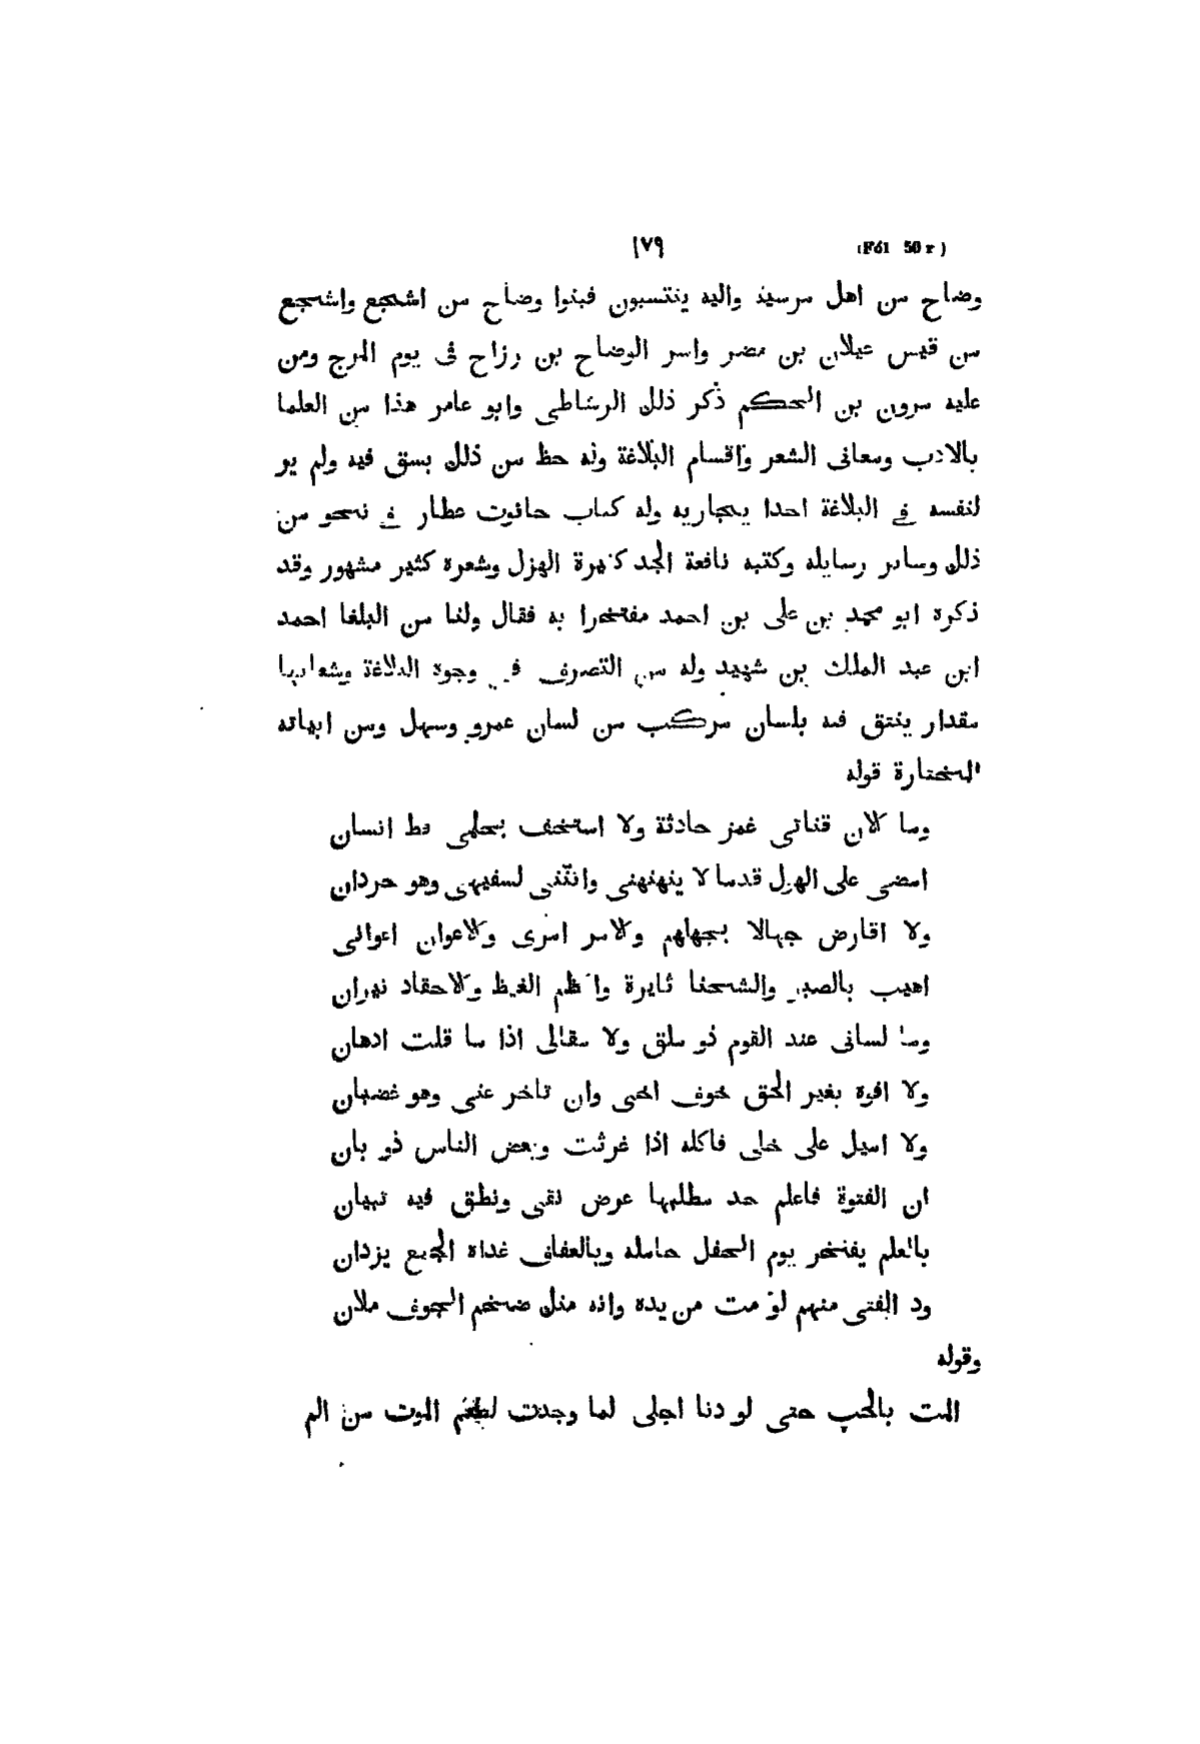 ١٧٩ (Fól 50 r)
وضاح من اهل مرسية واليه ينتسبون فبنوا وضاح من اشجع واشجع
من قيس عيلان بن مضر واسر الوضاح بن رزاح فى يوم المرج ومن
عليه مرون بن الحكم ذكر ذلك الرشاطى وابو عامر هذا من العلما
بالادب ومعانى الشعر واقسام البلاغة وله حظ من ذلك بسق فيه ولم ير
لنفسه في البلاغة احدا يجاريه وله كتاب حانوت عطار في نحو من
ذلك وساير رسايله وكتبه نافعة الجد كثيرة الهزل وشعره كثير مشهور وقد
ذكره ابو محمد بن على بن احمد مفتخرا به فقال ولنا من البلغا احمد
ابن عبد الملك بن شهيد وله من التصرف في وجوه البلاغة وشعابها
مقدار ينتق فيه بلسان مركب من لسان عمرو وسهل ومن ابياته
المختارة قوله
وما كلان قناتى غمز حادثة ولا استخف بحلمى قط انسان
امضى على الهول قدما لا ينهنهنى وانثنى لسفيهى وهو حردان
ولا اقارض جهالا بجهلهم وكلامر امرى وكلاعوان اعوانى
اهيب بالصبر والشحنا ثايرة واكظم الغيظ وكلاحقاد نيران
وما لسانى عند القوم ذو ملق ولا مقالى اذا ما قلت ادهان
ولا افوه بغير الحق خوف اخى وان تاخر عنى وهو غضبان
ولا اميل على خلى فاكله اذا غرثت وبعض الناس ذو بان
ان الفتوة فاعلم حد مطلبها عرض نقى ونطق فيه تبيان
بالعلم يفتخر يوم الحفل حامله وبالعفاف غداة الجمع يزدان
ود الفتى منهم لو مت من يده وانه منك ضخم الجوف ملان
وقوله
المت بالحب حتى لو دنا اجلى لما وجدت لطعم الموت من الم